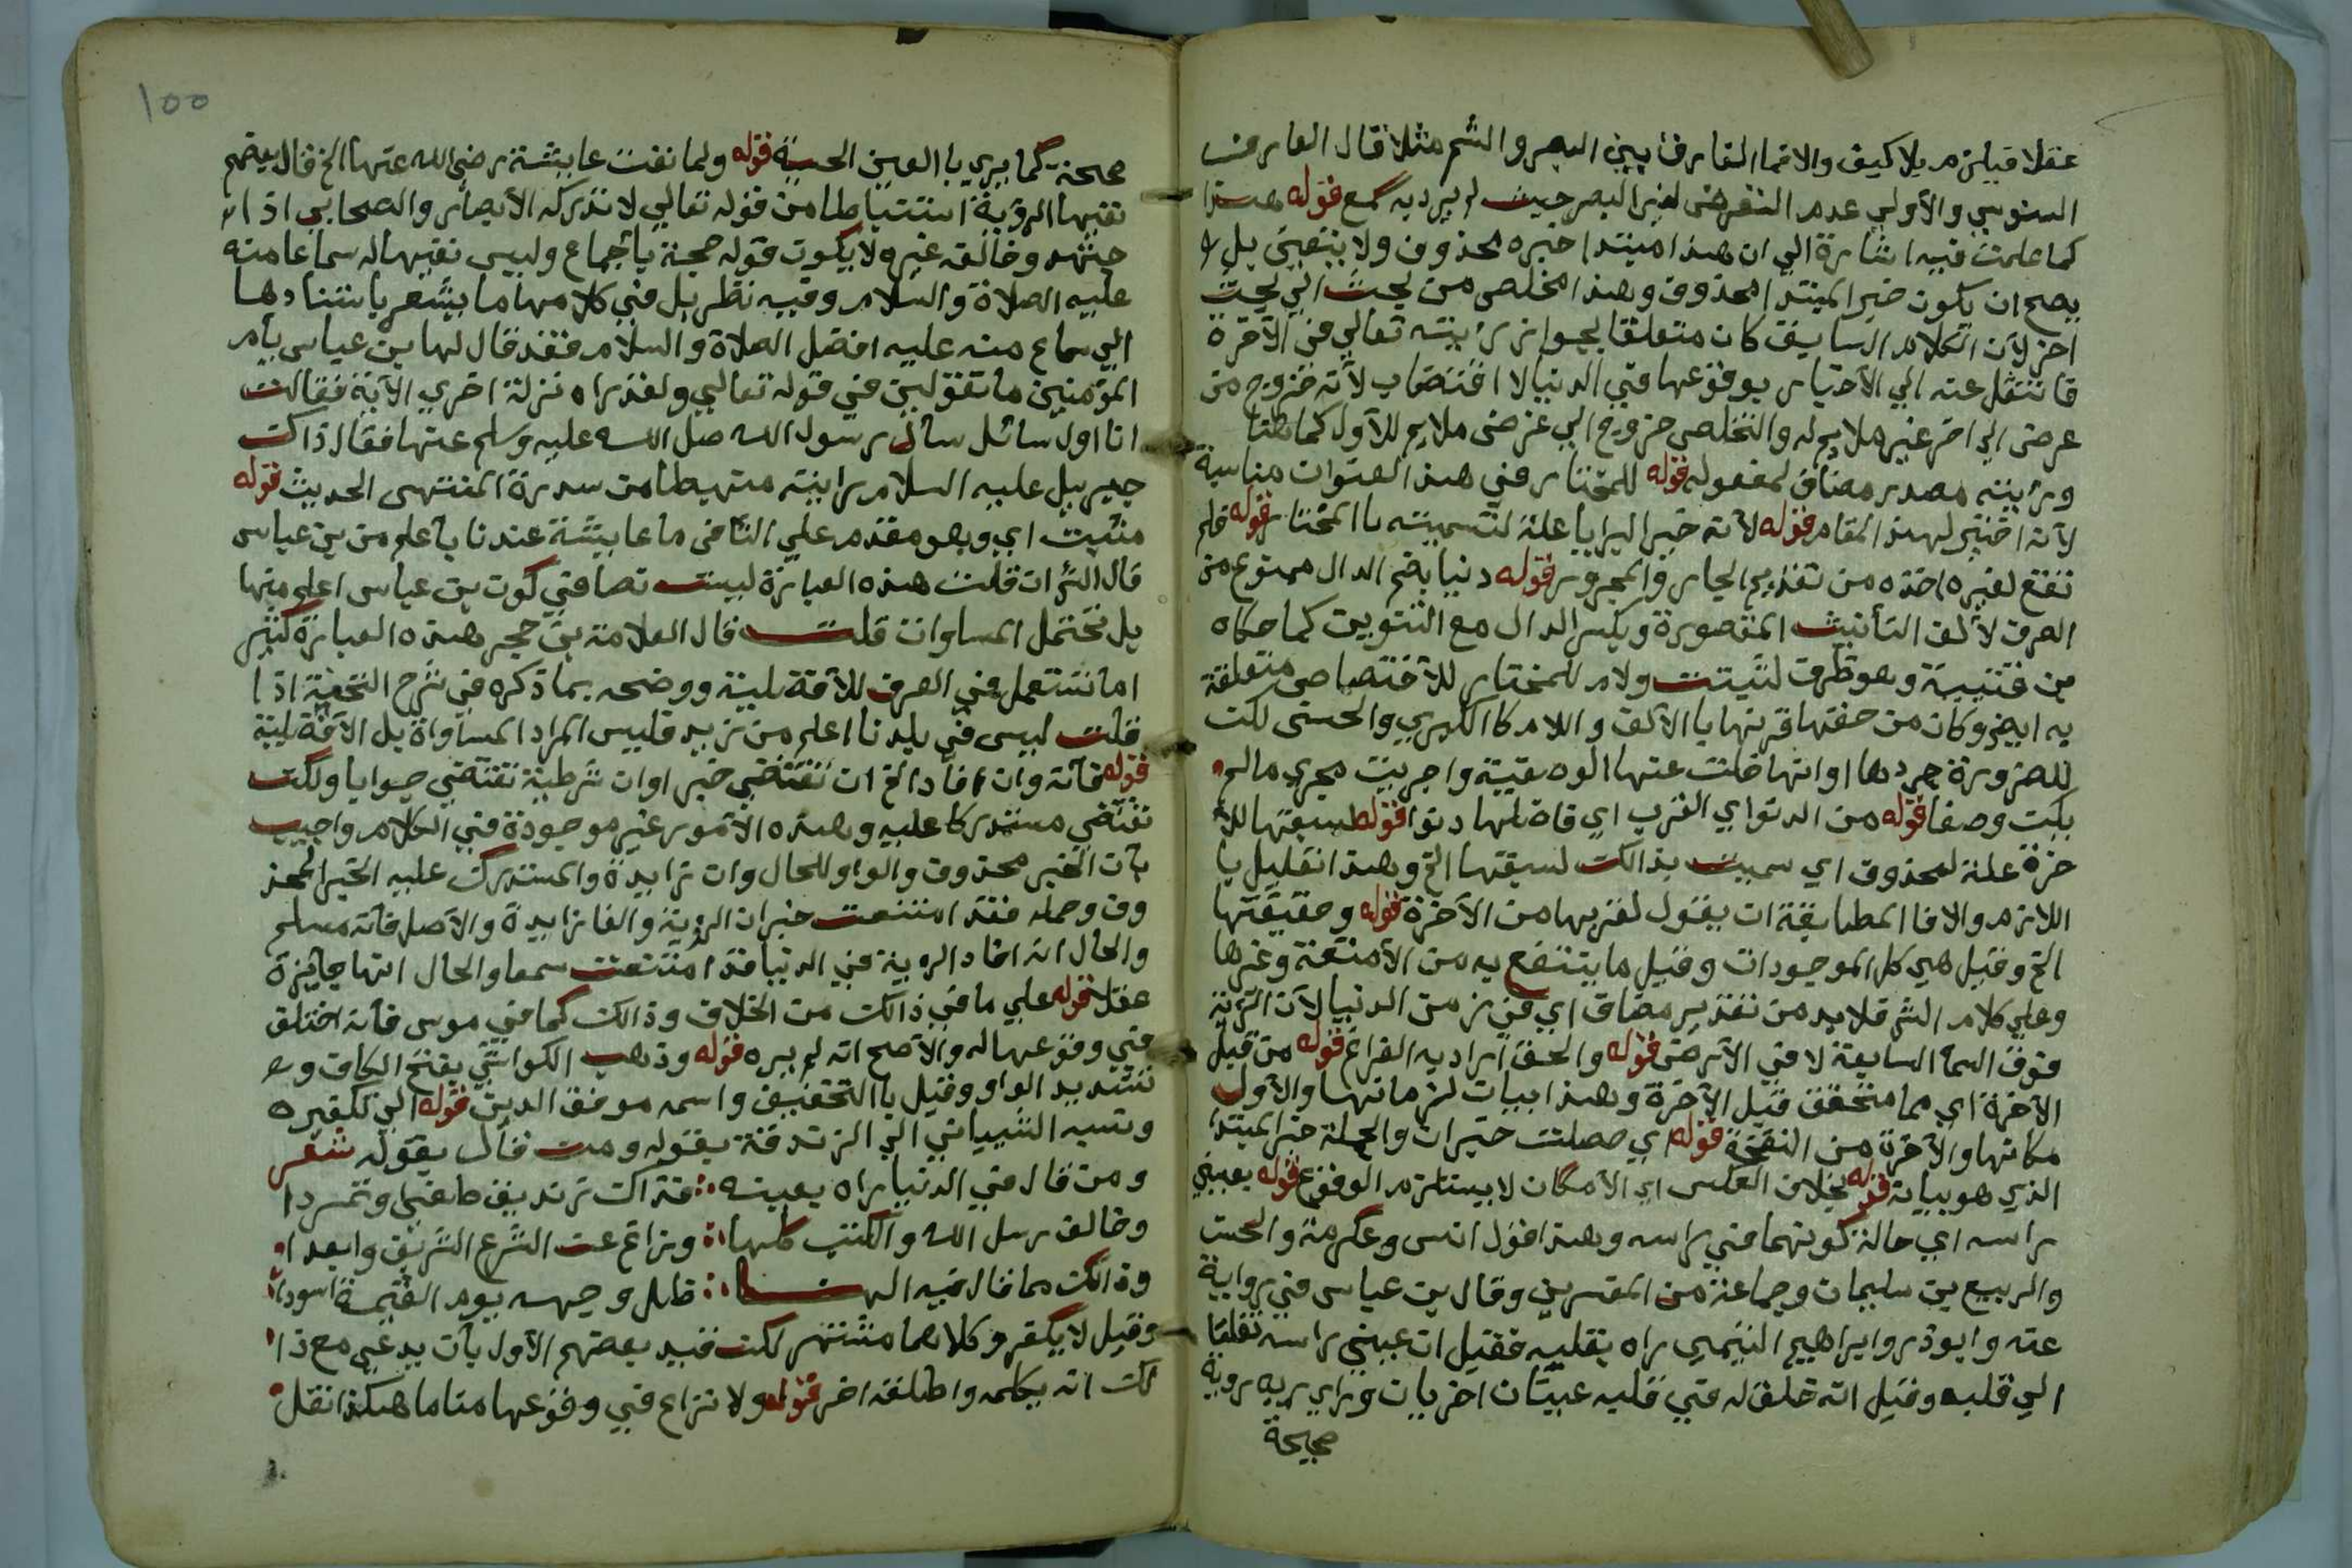 عقلا فيلزم بلا كيف والا فما الفارق بين البصر والشم مثلا قال العارف
السنوسي والأولى عدم التعرض لغير البصر حيث لم يرد به سمع قوله هذا
كما علمت فيه اشارة الي ان هذا مبتدا خبره محذوف ولا يتعين بل
يصح ان يكون خبر المبتدا محذوف وهذا مخلص من بحث الي بحث
اخر لأن الكلام السابق كان متعلقا بجواز رايته تعالي في الآخرة
فانتقل عنه الي الأخبار بوقوعها في الدنيا لا اقتضاب لأنه خروج من
غرض الي اخر غير ملايم له والتخلص خروج الي غرض ملايم للأول كما هنا
ورايته مصدر مضاف لمفعوله قوله للمختار في هذا العنوان مناسبة
لأنه اختير لهذا المقام قوله لأنه خير البرايا علة لتسميته باالمختار قوله فلم
تقع لغيره اخذه من تقديم الجار والمجرور قوله دنيا بضم الدال ممنوع من
الصرف لألف التأنيث المقصورة وبكسر الدال مع التنوين كما حكاه
بن قتيبة وهو ظرف لثبتت ولام للمختار للأختصاص متعلقة
به ايض وكان من حقها قرنها باالألف واللام كاالكبري والحسنى لكن
للضرورة جردها او انها خلت عنها الوصفية واجريت مجري مالم
يكن وصفا قوله من الدنواي القرب اي فاصلها دنوا قوله لسبقتها للأ
خرة علة لمحذوف اي سميت بذالك لسبقتها الخ وهذا تعليل با
اللازم والا فاالمطابقة ان يقول لقربها من الآخرة قوله وحقيقتها
الخ وقيل هي كل الموجودات وقيل ما ينتفع به من الأمتعة وغيرها
وعلي كلام الش فلا بد من تقدير مضاف اي في زمن الدنيا لأن الرؤية
فوق السما السابعة لا في الأرض قوله والحق اراد به الفراغ قوله من قبل
الآخرة اي مما متحقق قبل الآخرة وهذا بيان لزمانها والأول
مكانها والآخرة من النفخة قوله اي حصلت خبران والجملة خبر المبتدا
الذي هو بيانه قوله بخلاف العكس اي الأمكان لا يستلزم الوقوع قوله بعيني
راسه اي حالة كونهما في راسه وهذا قول انس وعكرمة والحسن
والربيع بن سليمان وجماعة من المفسرين وقال بن عباس في رواية
عنه وابوذر وابراهيم التيمي راه بقلبه فقيل ان عيني راسه نقلتا
الي قلبه وقيل انه خلق له في قلبه عينان اخريان فراي ربه روية
صحيحة
١٥٥
صحيحة كما يري باالعين الحسية قوله ولما نفت عايشة رضي الله عنها الخ قال بعضهم
نفيها الروية استنباطا من قوله تعالي لا تدركه الأبصار والصحابي اذا ا
جتهد وخالفه غيره لا يكون قوله حجة باجماع وليس نفيها له سماعا منه
عليه الصلاة والسلام وفيه نظر بل في كلامها ما يشعر باستنادها
الي سماع منه عليه افضل الصلاة والسلام فقد قال لها بن عباس يأم
المؤمنين ما تقولين في قوله تعالي ولقد راه نزلة اخري الآية فقالت
انا اول سائل سأل رسول الله صل الله عليه وسلم عنها فقال ذاك
جبريل عليه السلام رايته منهبطا من سدرة المنتهى الحديث قوله
مثبت اي وهو مقدم علي النافي ما عايشة عندنا بأعلم من بن عباس
قال الش ان قلت هذه العبارة ليست نصا في كون بن عباس اعلم منها
بل تحتمل المساوات قلت قال العلامة بن حجر هذه العبارة كثير
اما تستعمل في العرف للأفضلية ووضحه بما ذكره في شرح النخبة اذا
قلت ليس في بلدنا اعلم من زيد فليس المراد المساواة بل الأفضلية
قوله فأنه وان افاد الخ ان تقتضي خبر او ان شرطية تقتضي جوابا ولكن
تقتضي مستدركا عليه وهذه الأمور غير موجودة في الكلام واجيب
بأن الخبر محذوف والواو للحال وان زايدة والمستدرك عليه الخبر المحذ
وف وجمله فقد امتنعت خبر ان الروية والفا زايدة والأصل فأنه مسلم
والحال انه افاد الروية في الدنيا فقد امتنعت سمعا والحال انها جايزة
عقلا قوله علي ما في ذالك من الخلاف وذالك كما في موسى فأنه اختلف
في وقوعها له والأصح انه لم يره قوله وذهب الكواشي بفتح الكاف و
تشديد الواو وقيل باالتخفيف واسمه موفق الدين قوله الي تكفيره
ونسبه الشيباني الي الزندقة بقوله ومن قال بقوله شعر
ومن قال في الدنيا يراه بعينه :: فذاك زنديق طغى وتمردا
وخالف رسل الله والكتب كلها :: وزاغ عن الشرع الشريف وابعدا
وذالك مما قال فيه الهنا :: ظل وجهه يوم القيمة اسودا
وقيل لا يكفر وكلاهما مشتهر لكن قيد بعضهم الأول بأن يدعي مع ذا
لك انه يكلمه واطلقه اخر قوله ولا نزاع في وقوعها مناما هكذا نقل